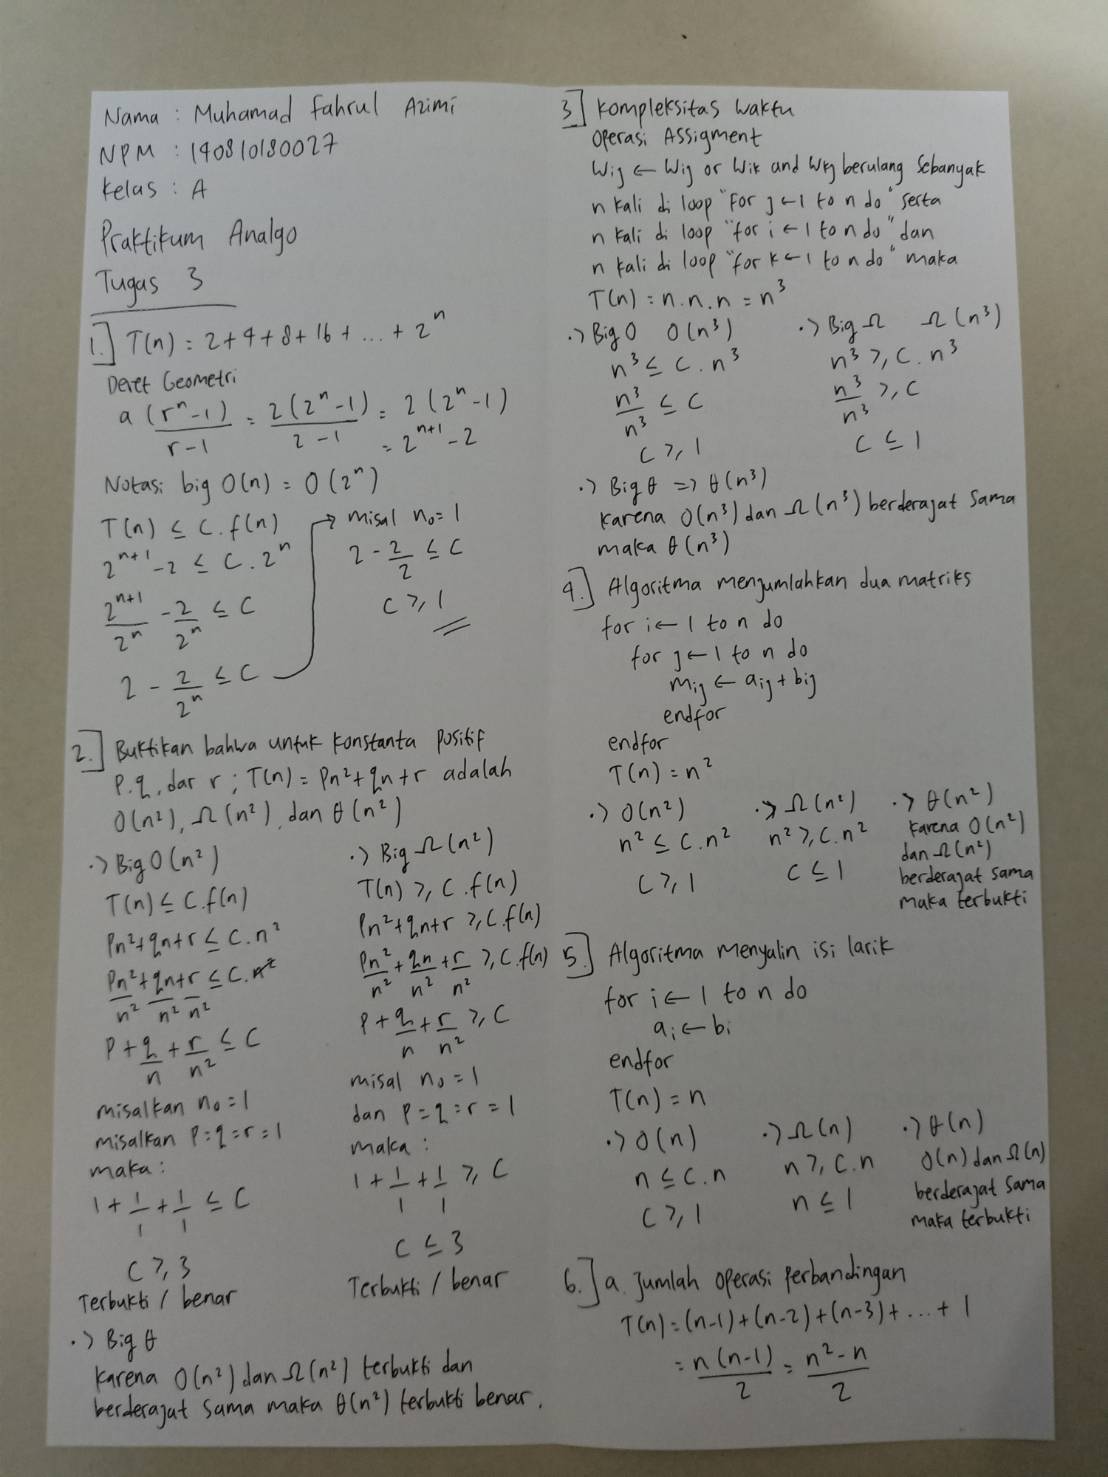 Nama : Muhamad Fahrul Azimi
NPM : 140810180027
Kelas : A
Praktikum Analgo
Tugas 3
1.] T(n) = 2+4+8+16+...+2^n
Deret Geometri
a (r^n-1)/(r-1) = 2(2^n-1)/(2-1) = 2(2^n-1)
= 2^(n+1) - 2
Notasi big O(n) = O(2^n)
T(n) ≤ C.f(n)
2^(n+1) - 2 ≤ C.2^n
2^(n+1)/2^n - 2/2^n ≤ C
2 - 2/2^n ≤ C
→ misal n₀ = 1
2 - 2/2 ≤ C
C ≥ 1
2.] Buktikan bahwa untuk konstanta positif
P.q, dar r ; T(n) = Pn²+qn+r adalah
O(n²), Ω(n²), dan θ(n²)
.> Big O(n²)
T(n) ≤ C.f(n)
Pn²+qn+r ≤ C.n²
Pn²/n² + qn/n² + r/n² ≤ C.n²
P + q/n + r/n² ≤ C
misalkan n₀ = 1
misalkan P=q=r=1
maka :
1 + 1/1 + 1/1 ≤ C
C ≥ 3
Terbukti / benar
.> Big Ω(n²)
T(n) ≥ C.f(n)
Pn²+qn+r ≥ C.f(n)
Pn²/n² + qn/n² + r/n² ≥ C.f(n)
P + q/n + r/n² ≥ C
misal n₀ = 1
dan P=q=r=1
maka :
1 + 1/1 + 1/1 ≥ C
C ≤ 3
Terbukti / benar
.> Big θ
Karena O(n²) dan Ω(n²) terbukti dan
berderajat sama maka θ(n²) terbukti benar.
3.] Kompleksitas waktu
Operasi Assigment
Wij ← Wij or Wik and Wkj berulang sebanyak
n kali di loop "for j←1 to n do" serta
n kali di loop "for i←1 to n do" dan
n kali di loop "for k←1 to n do" maka
T(n) = n.n.n = n³
.> Big O O(n³)
n³ ≤ C.n³
n³/n³ ≤ C
C ≥ 1
.> Big Ω Ω(n³)
n³ ≥ C.n³
n³/n³ ≥ C
C ≤ 1
.> Big θ => θ(n³)
Karena O(n³) dan Ω(n³) berderajat sama
maka θ(n³)
4.] Algoritma menjumlahkan dua matriks
for i← 1 to n do
for j←1 to n do
mij ← aij + bij
endfor
endfor
T(n) = n²
.> O(n²)
n² ≤ C.n²
C ≥ 1
.> Ω(n²)
n² ≥ C.n²
C ≤ 1
.> θ(n²)
Karena O(n²)
dan Ω(n²)
berderajat sama
maka terbukti
5.] Algoritma menyalin isi larik
for i← 1 to n do
ai ← bi
endfor
T(n) = n
.> O(n)
n ≤ C.n
C ≥ 1
.> Ω(n)
n ≥ C.n
n ≤ 1
.> θ(n)
O(n) dan Ω(n)
berderajat sama
maka terbukti
6.] a. Jumlah operasi perbandingan
T(n) = (n-1)+(n-2)+(n-3)+...+ 1
= n(n-1)/2 = (n²-n)/2